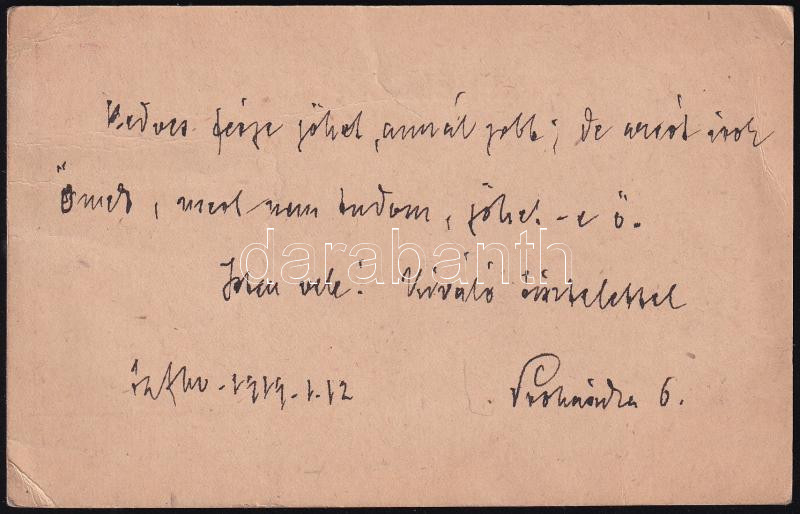 Kedves férje jöhet, annál jobb; de azért írok
Önnek, mert nem tudom, jöhet-e ő.
Isten vele! Kiváló tisztelettel
1919.1.12 Prohászka
darabanth